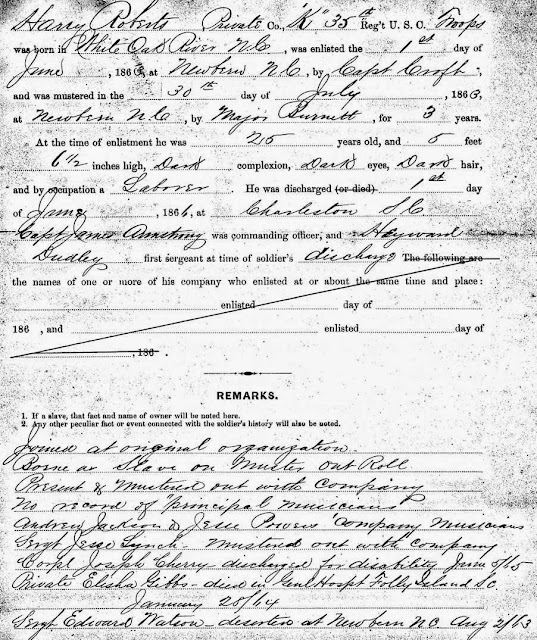 Harry Roberts Private Co., "K" 35th Reg't U. S. C. Troops
was born in White Oak River N.C., was enlisted the 1st day of
June, 1863, at Newbern N.C., by Capt Croft,
and was mustered in the 30th day of July, 1863,
at Newbern N.C., by Major Burnett, for 3 years.
At the time of enlistment he was 25 years old, and 5 feet
6½ inches high, Dark complexion, Dark eyes, Dark hair,
and by occupation a Laborer. He was discharged (or died) 1st day
of June, 1866, at Charleston S.C.
Capt James Armstrong was commanding officer, and Heyward
Dudley first sergeant at time of soldier's discharge The following are
the names of one or more of his company who enlisted at or about the same time and place:
enlisted day of
186 , and enlisted day of
, 186 .
REMARKS.
1. If a slave, that fact and name of owner will be noted here.
2. Any other peculiar fact or event connected with the soldier's history will also be noted.
Joined at original organization.
Borne as Slave on Muster Out Roll
Present & Mustered out with company
No record of "principal musicians"
Andrew Jackson & Jesse Powers company musicians
Sergt Jesse Lynch - Mustered out with company
Corpl Joseph Cherry - discharged for disability June 8/65
Private Elisha Gibbs - died in Genl Hospt Folly Island S.C.
January 28/64
Sergt Edward Watson - deserted at Newbern N.C. Aug 2/63